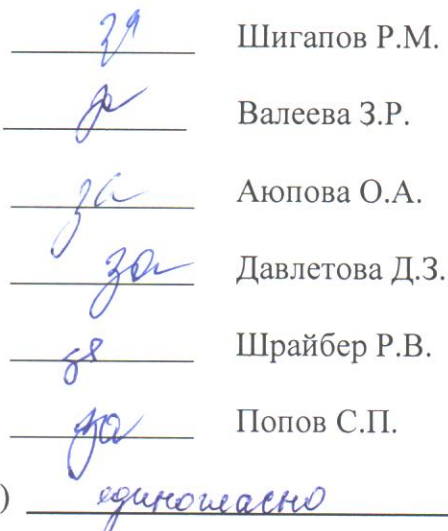 за Шигапов Р.М.
за Валеева З.Р.
за Аюпова О.А.
за Давлетова Д.З.
за Шрайбер Р.В.
за Попов С.П.
) единогласно